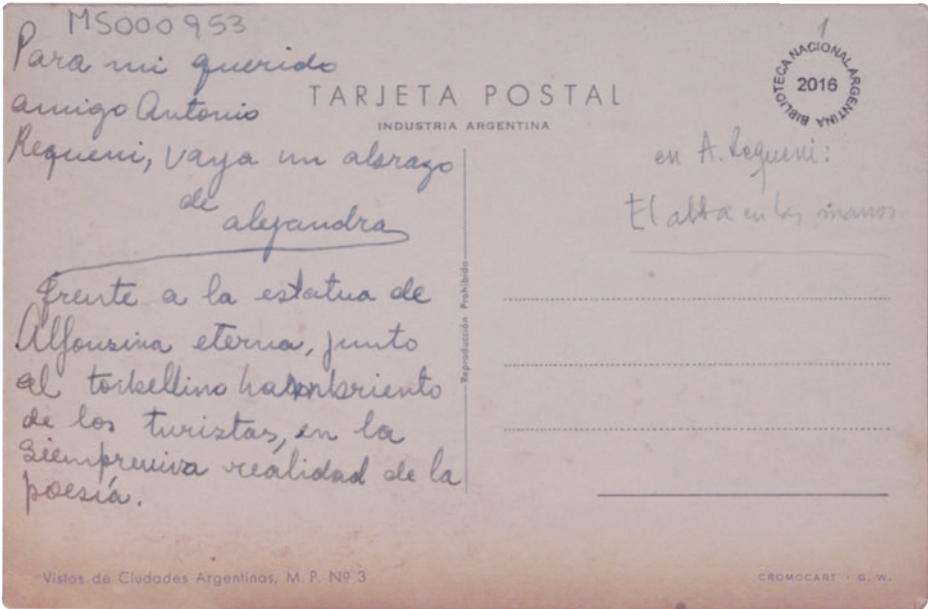 MS000953
Para mi querido
amigo Antonio
Requeni, vaya un abrazo
de
alejandra
frente a la estatua de
Alfonsina eterna, junto
al torbellino hambriento
de los turistas, en la
siempreviva realidad de la
poesía.
TARJETA POSTAL
INDUSTRIA ARGENTINA
Reproducción Prohibida
1
BIBLIOTECA NACIONAL ARGENTINA
2016
en A. Requeni:
El alba en las manos
Vistas de Ciudades Argentinas, M. P. Nº 3
CROMOCART - G. W.